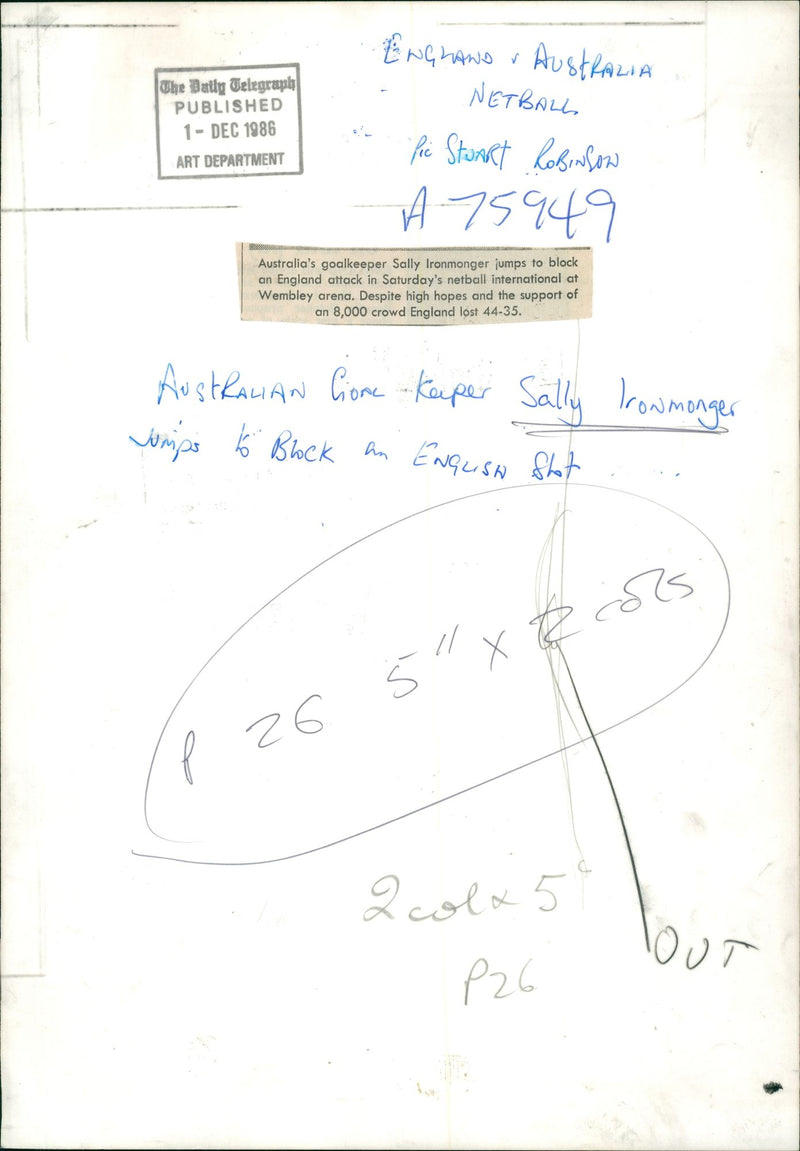 The Daily Telegraph
PUBLISHED
1 - DEC 1986
ART DEPARTMENT
ENGLAND v AUSTRALIA
NETBALL
Pic STUART ROBINSON
A 75949
Australia's goalkeeper Sally Ironmonger jumps to block
an England attack in Saturday's netball international at
Wembley arena. Despite high hopes and the support of
an 8,000 crowd England lost 44-35.
AUSTRALIAN Goal Keeper Sally Ironmonger
Jumps to Block an ENGLISH Shot .....
P 26 5" x 2 cols
2 col x 5"
P26
OUT